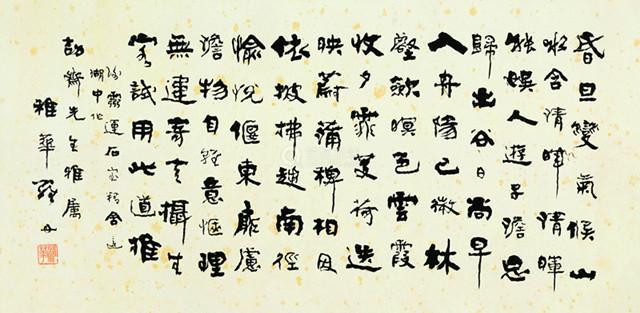 昏旦變氣候山
水含清暉清暉
能娛人遊子憺忘
歸出谷日尚早
入舟陽已微林
壑斂暝色雲霞
收夕霏芰荷迭
映蔚蒲稗相因
依披拂趨南徑
愉悅偃東扉慮
澹物自輕意愜理
無違寄言攝生
客試用此道推
謝靈運石壁精舍還
湖中作
齋先生雅屬
稚華羅丹